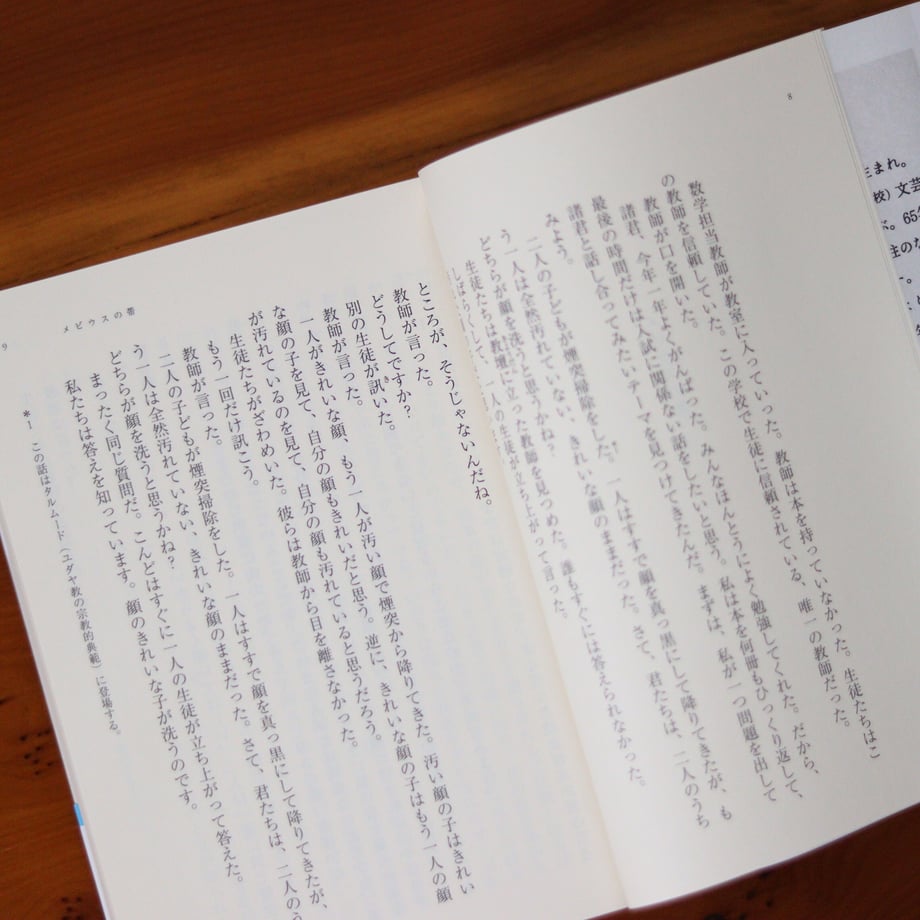 8
数学担当教師が教室に入っていった。教師は本を持っていなかった。生徒たちはこ
の教師を信頼していた。この学校で生徒に信頼されている、唯一の教師だった。
教師が口を開いた。
諸君、今年一年よくがんばった。みんなほんとうによく勉強してくれた。だから、
最後の時間だけは入試に関係ない話をしたいと思う。私は本を何冊もひっくり返して、
諸君と話し合ってみたいテーマを見つけてきたんだ。まずは、私が一つ問題を出して
みよう。
二人の子どもが煙突掃除をした。一人はすすで顔を真っ黒にして降りてきたが、も
う一人は全然汚れていない、きれいな顔のままだった。さて、君たちは、二人のうち
どちらが顔を洗うと思うかね?
生徒たちは教壇に立った教師を見つめた。誰もすぐには答えられなかった。
しばらくして、一人の生徒が立ち上がって言った。
ところが、そうじゃないんだね。
教師が言った。
どうしてですか?
別の生徒が訊いた。
教師が言った。
一人がきれいな顔、もう一人が汚い顔で煙突から降りてきた。汚い顔の子はきれい
な顔の子を見て、自分の顔もきれいだと思う。逆に、きれいな顔の子はもう一人の顔
が汚れているのを見て、自分の顔も汚れていると思うだろう。
生徒たちがざわめいた。彼らは教師から目を離さなかった。
もう一回だけ訊こう。
教師が言った。
二人の子どもが煙突掃除をした。一人はすすで顔を真っ黒にして降りてきたが、
う一人は全然汚れていない、きれいな顔のままだった。さて、君たちは、二人のう
どちらが顔を洗うと思うかね?
まったく同じ質問だ。こんどはすぐに一人の生徒が立ち上がって答えた。
私たちは答えを知っています。顔のきれいな子が洗うのです。
*1 この話はタルムード(ユダヤ教の宗教的典範)に登場する。
メビウスの帯
9
まれ。
校)文芸
。65
注のな